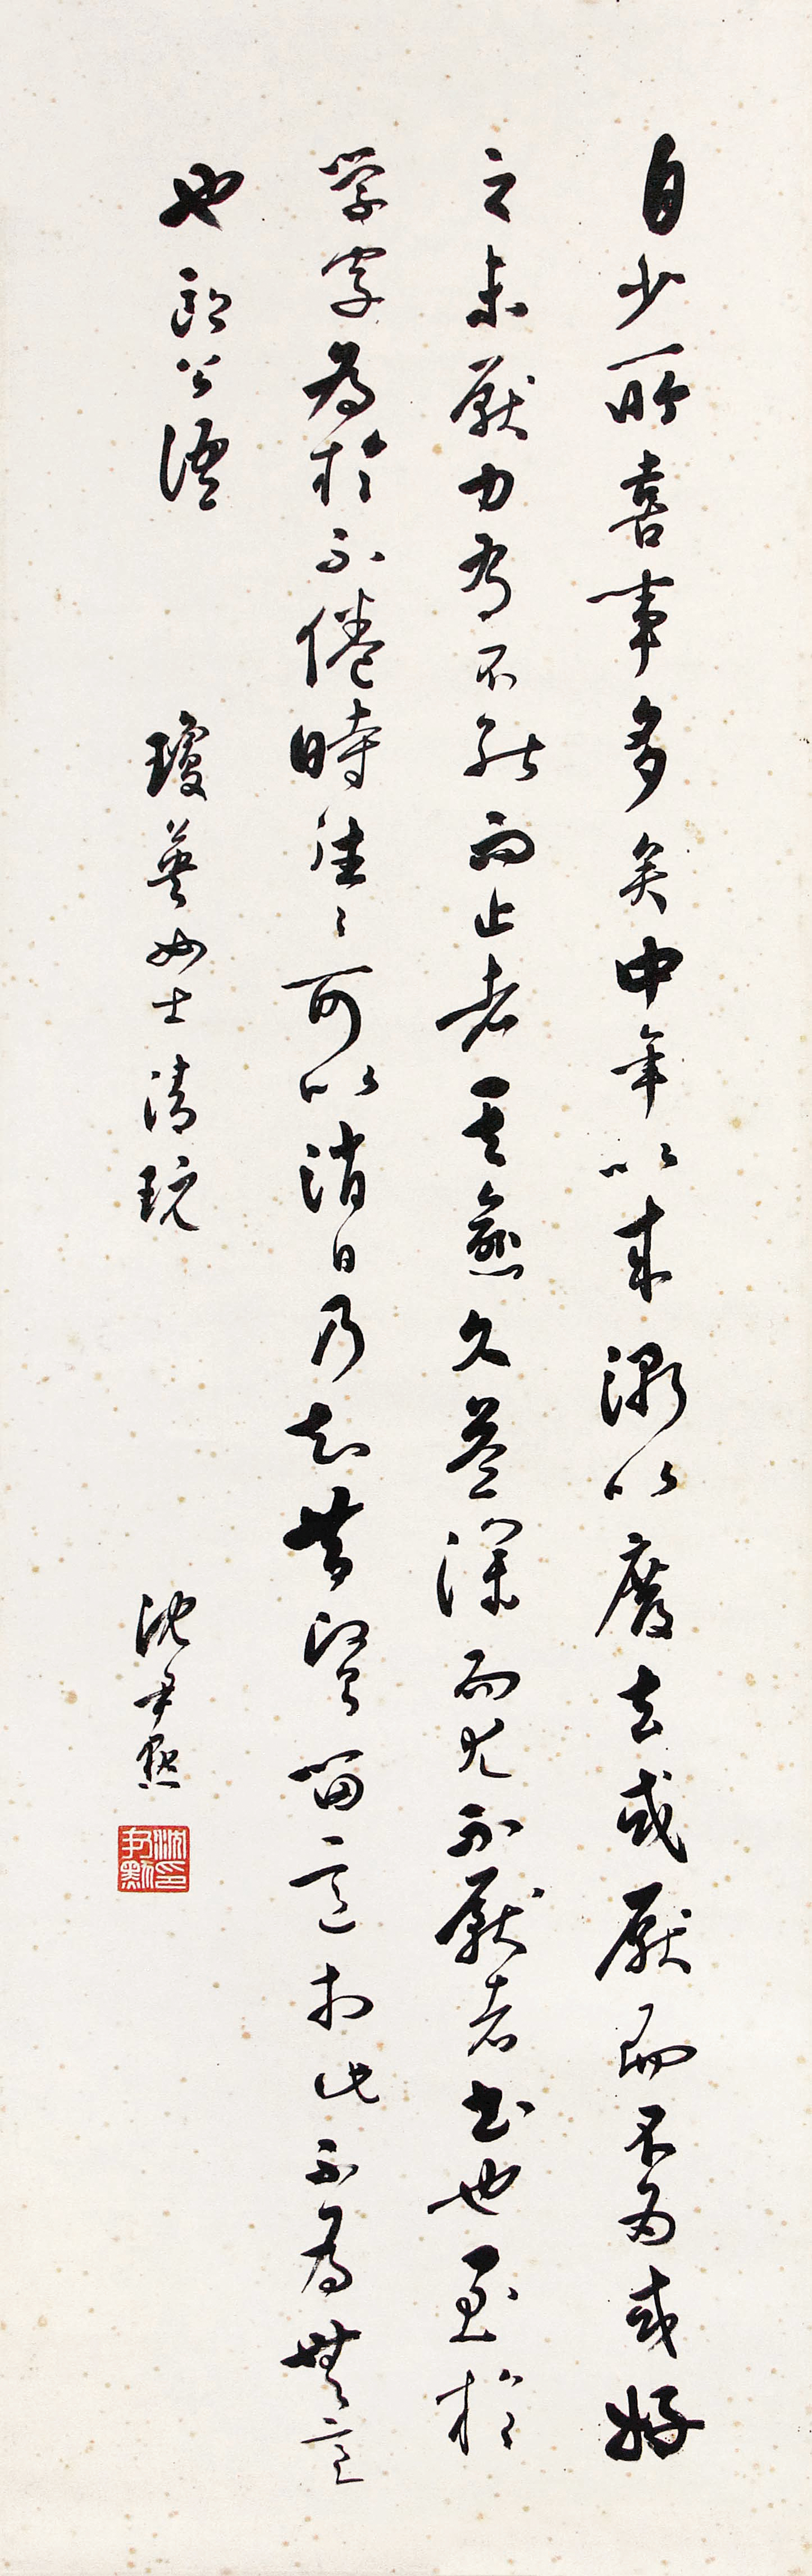 自少所喜事多矣中年以来漸以廢去或厭而不為或好
之未厭力有不能而止者其愈久益深而尤不厭者書也至於
学字為於不倦時往〻可以消日乃知昔賢留意於此不為無意
也 歐公語 瓊英女士清玩 沈尹默
沈尹默印